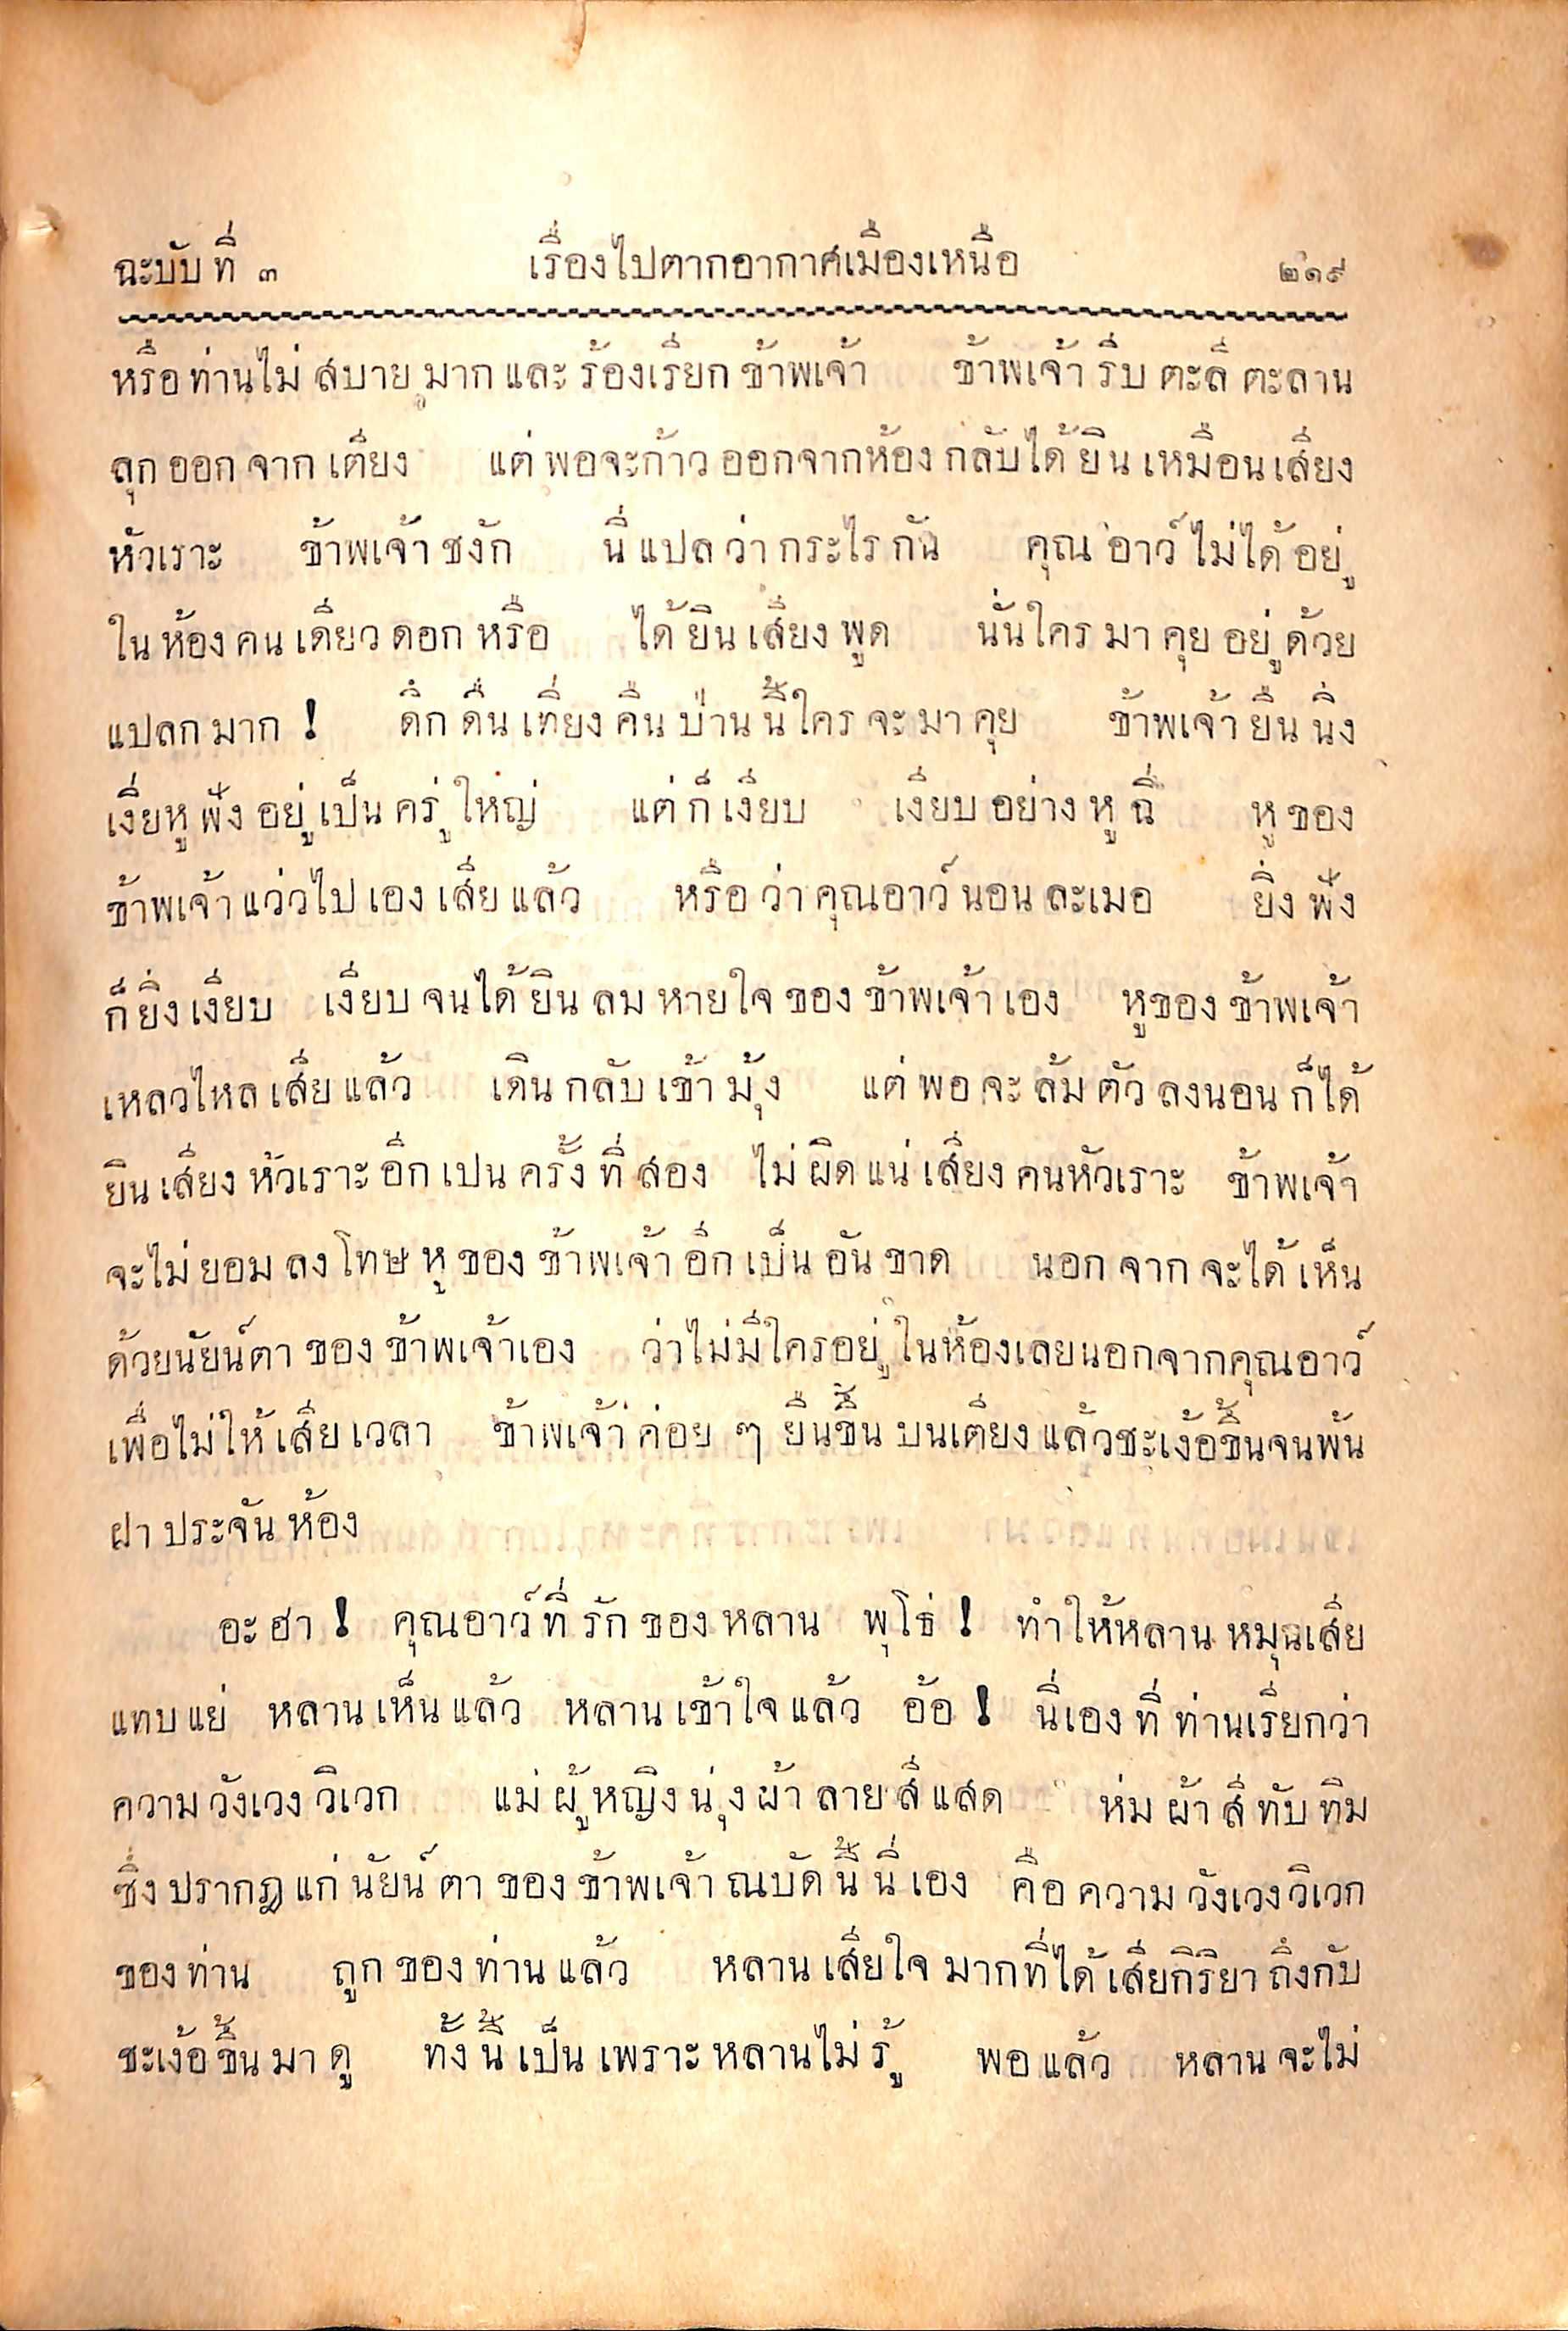 ฉะบับที่ ๓ เรื่องไปตากอากาศเมืองเหนือ ๒๑๙
หรือท่านไม่สบายมากและร้องเรียกข้าพเจ้า ข้าพเจ้ารีบตะลีตะลาน
ลุกออกจากเตียง แต่พอจะก้าวออกจากห้องกลับได้ยินเหมือนเสียง
หัวเราะ ข้าพเจ้าชงัก นี่แปลว่ากระไรกัน คุณอาว์ไม่ได้อยู่
ในห้องคนเดียวดอกหรือ ได้ยินเสียงพูด นั่นใครมาคุยอยู่ด้วย
แปลกมาก ! ดึกดื่นเที่ยงคืนป่านนี้ใครจะมาคุย ข้าพเจ้ายืนนิ่ง
เงี่ยหูฟังอยู่เป็นครู่ใหญ่ แต่ก็เงียบ เงียบอย่างหูฉี่ หูของ
ข้าพเจ้าแว่วไปเองเสียแล้ว หรือว่าคุณอาว์นอนละเมอ ยิ่งฟัง
ก็ยิ่งเงียบ เงียบจนได้ยินลมหายใจของข้าพเจ้าเอง หูของข้าพเจ้า
เหลวไหลเสียแล้ว เดินกลับเข้ามุ้ง แต่พอจะล้มตัวลงนอนก็ได้
ยินเสียงหัวเราะอีกเปนครั้งที่สอง ไม่ผิดแน่เสียงคนหัวเราะ ข้าพเจ้า
จะไม่ยอมลงโทษหูของข้าพเจ้าอีกเป็นอันขาด นอกจากจะได้เห็น
ด้วยนัยน์ตาของข้าพเจ้าเอง ว่าไม่มีใครอยู่ในห้องเลยนอกจากคุณอาว์
เพื่อไม่ให้เสียเวลา ข้าพเจ้าค่อย ๆ ยืนขึ้นบนเตียงแล้วชะเง้อขึ้นจนพ้น
ฝาประจันห้อง
อะฮา ! คุณอาว์ที่รักของหลาน พุโธ่ ! ทำให้หลานหมุนเสีย
แทบแย่ หลานเห็นแล้ว หลานเข้าใจแล้ว อ้อ ! นี่เองที่ท่านเรียกว่า
ความวังเวงวิเวก แม่ผู้หญิงนุ่งผ้าลายสีแสด ห่มผ้าสีทับทิม
ซึ่งปรากฏแก่นัยน์ตาของข้าพเจ้าณบัดนี้นี่เอง คือความวังเวงวิเวก
ของท่าน ถูกของท่านแล้ว หลานเสียใจมากที่ได้เสียกิริยาถึงกับ
ชะเง้อขึ้นมาดู ทั้งนี้เป็นเพราะหลานไม่รู้ พอแล้ว หลานจะไม่